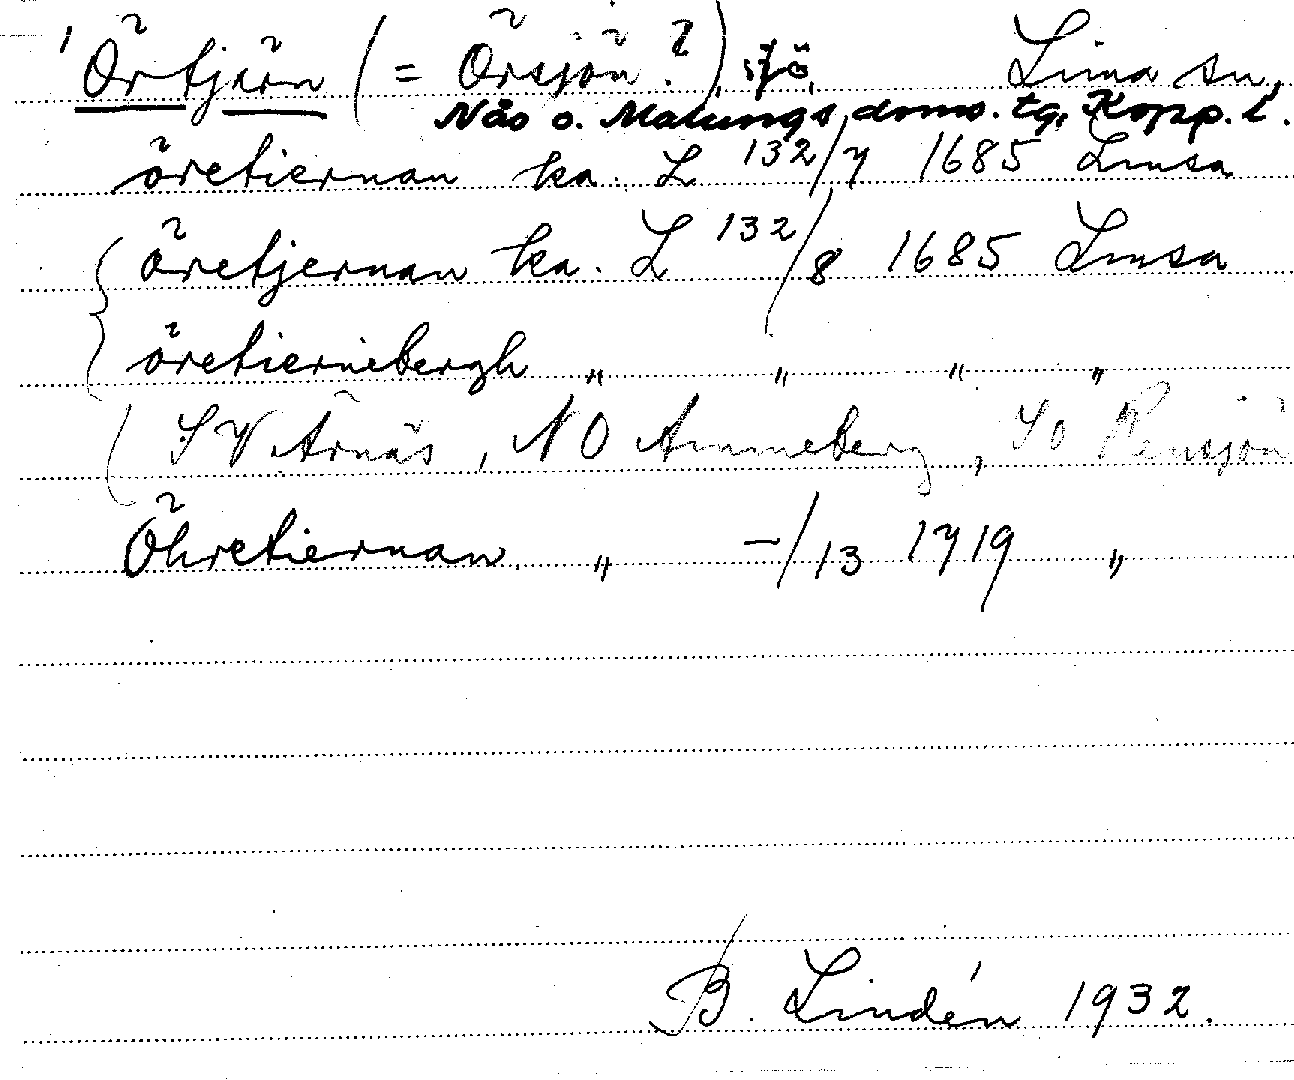 Örtjärn (= Örsjön?), sjö, Lima sn,
Nås o. Malungs doms. tg, Kopp. l.
öretiernan ka. L 132/7 1685 Limsa
öretjernan ka. L 132/8 1685 Limsa
öretiernebergh „ „ „ „
(SV Arnäs, NO Ammeberg, SO Rensjön
Öhretiernan. „ –/13 1719 „
B. Lindén 1932.